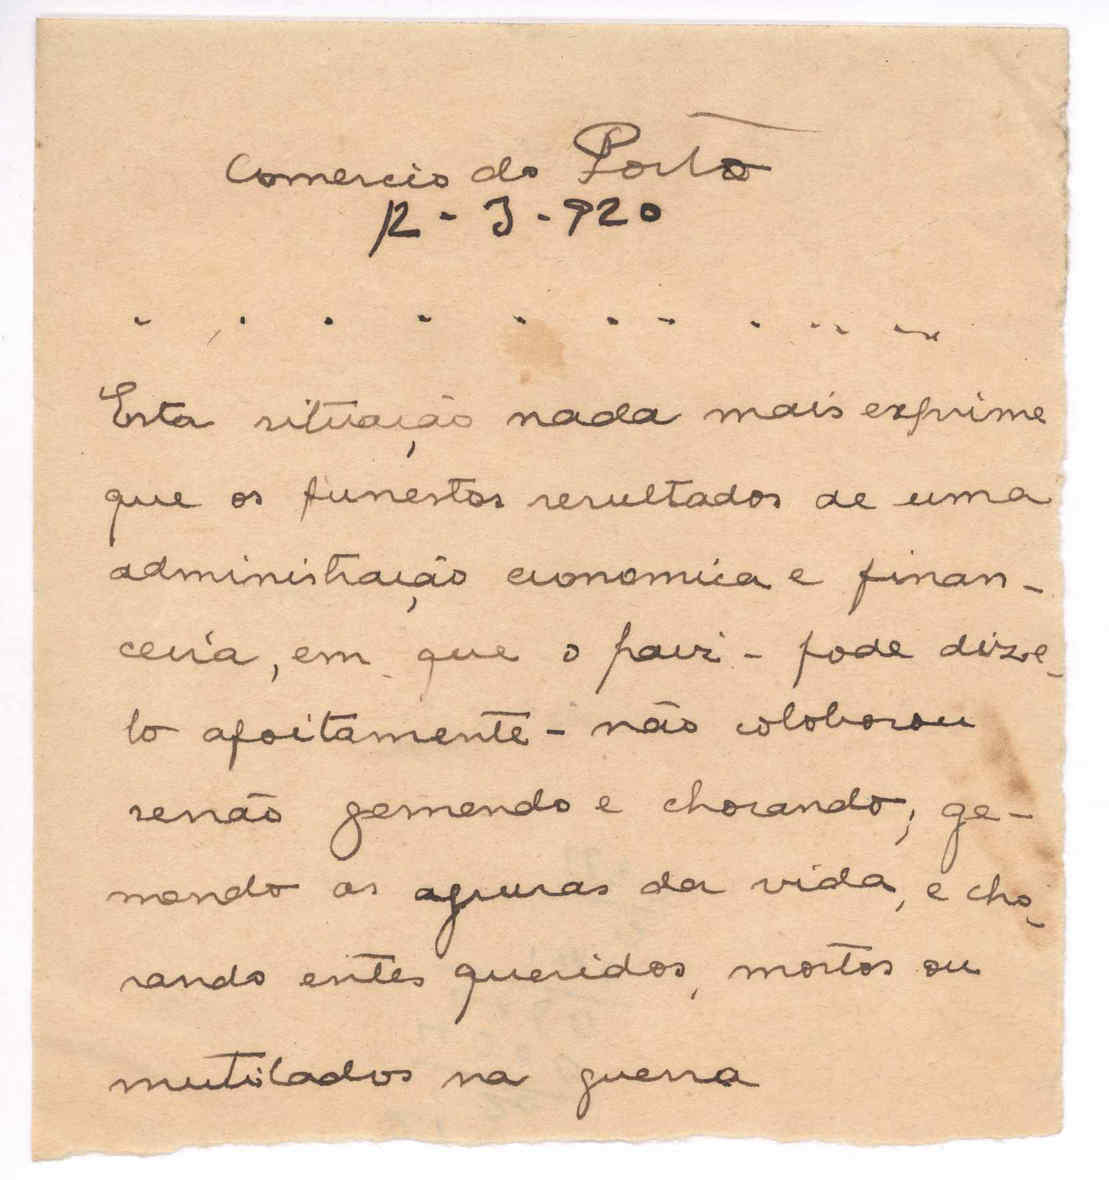 Comercio do Porto
12-3-920
. . . . . . . . . . .
Esta situação nada mais exprime
que os funestos resultados de uma
administração economica e finan-
ceira, em que o paiz - pode dize-
lo afoitamente - não coloborou
senão gemendo e chorando; ge-
mendo as agruras da vida, e cho-
rando entes queridos, mortos ou
mutilados na guerra